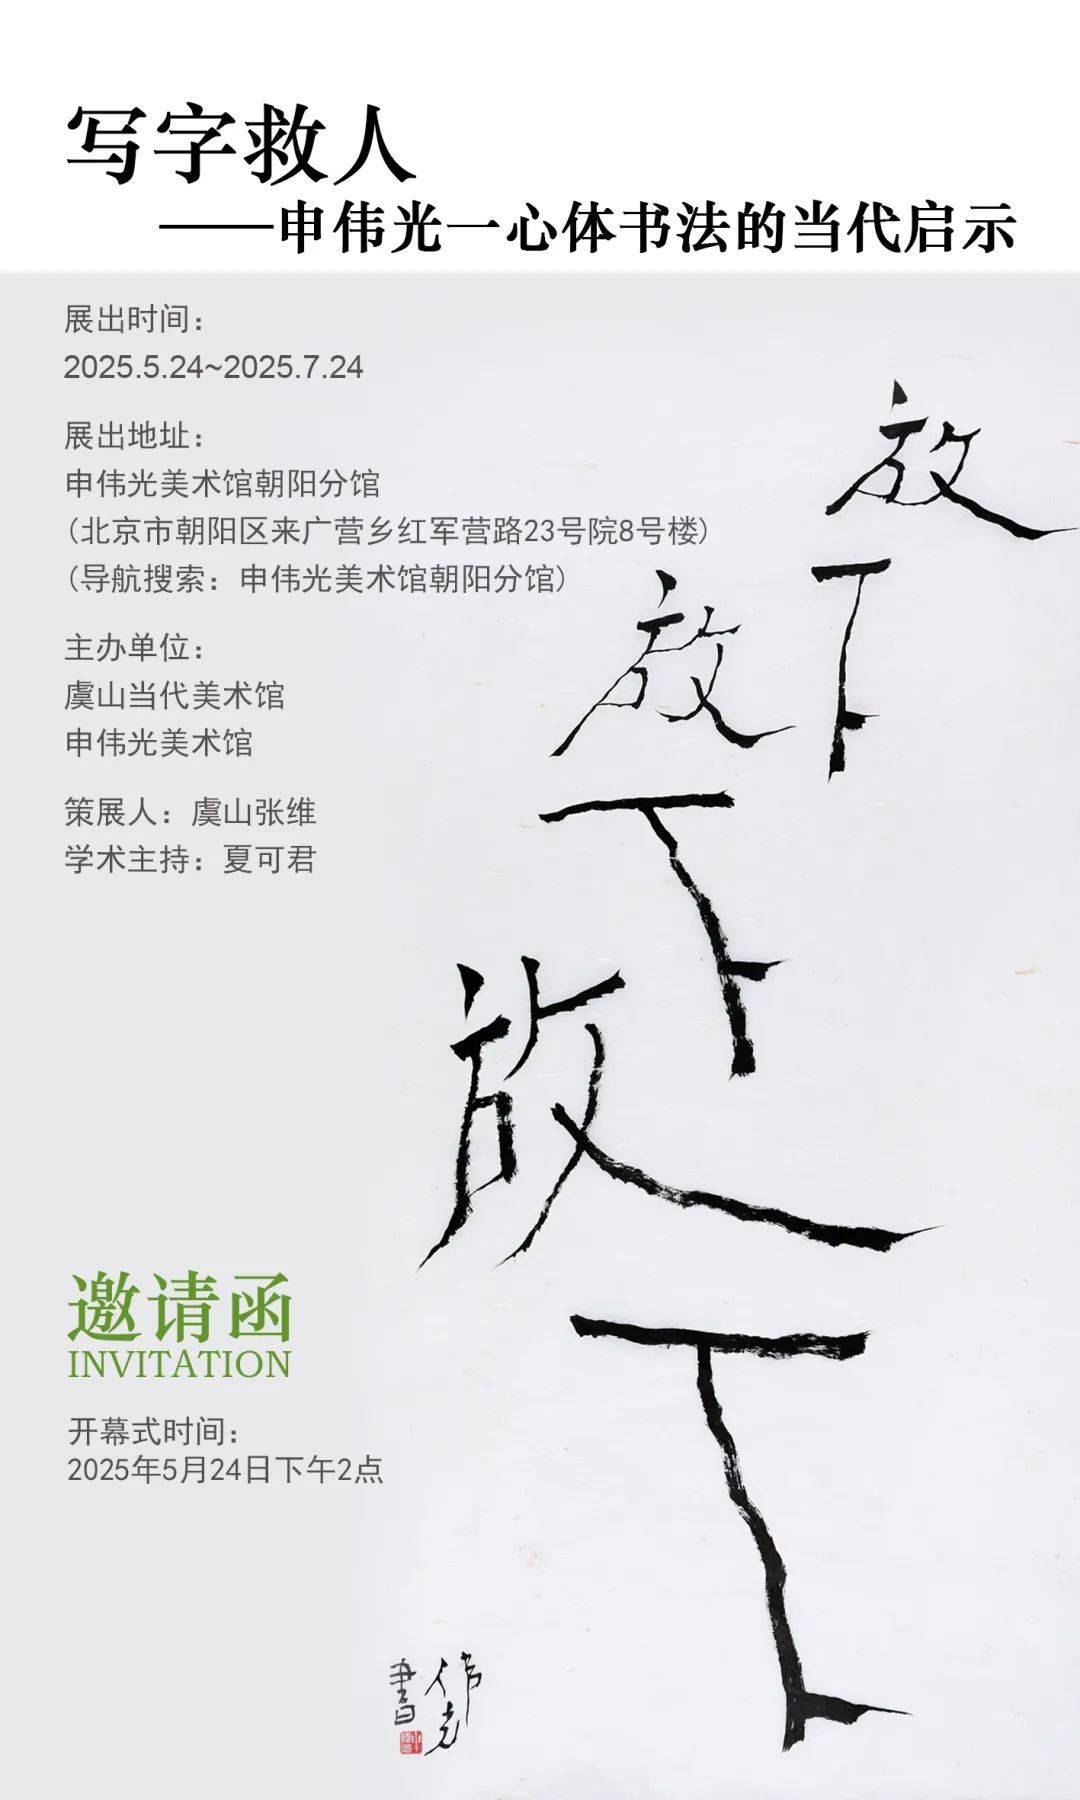 写字救人
——申伟光一心体书法的当代启示
展出时间：
2025.5.24~2025.7.24
展出地址：
申伟光美术馆朝阳分馆
(北京市朝阳区来广营乡红军营路23号院8号楼)
(导航搜索：申伟光美术馆朝阳分馆)
主办单位：
虞山当代美术馆
申伟光美术馆
策展人：虞山张维
学术主持：夏可君
放下
放下
放下
邀请函
INVITATION
开幕式时间：
2025年5月24日下午2点
伟光
書